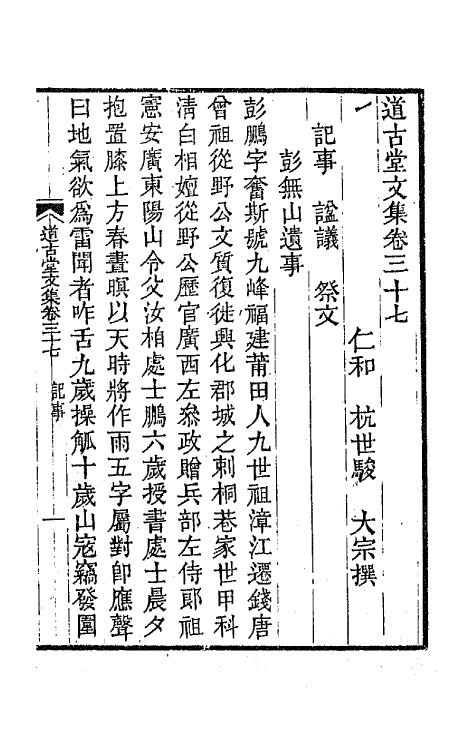 道古堂文集卷三十七
仁和　杭世駿　大宗撰
記事　諡議　祭文
彭無山遺事
彭鵬字奮斯號九峰福建莆田人九世祖漳江遷錢唐
曾祖從野公文質復徙興化郡城之刺桐巷家世甲科
清白相嬗從野公歷官廣西左叅政贈兵部左侍郎祖
憲安廣東陽山令父汝柏處士鵬六歲授書處士晨夕
抱置膝上方春晝暝以天時將作雨五字屬對卽應聲
曰地氣欲爲雷聞者咋舌九歲操觚十歲山寇竊發圍
道古堂文集卷三十七　記事　一